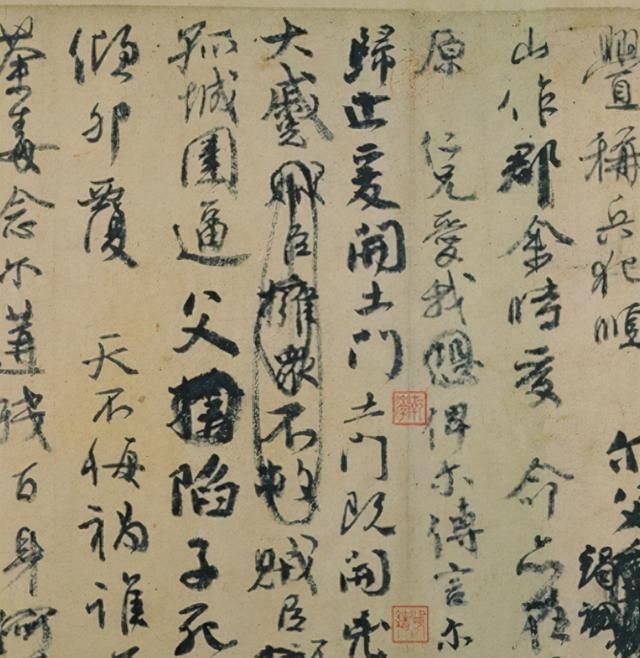 釁稱兵犯順 尒父竭誠
山作郡余時受 命亦在
原 仁兄愛我 俾尒傳言尒
歸止爰開土門土門既開凶
大蹙賊臣擁衆不救賊臣不
孤城圍逼父擒陷子死
傾卵覆 天不悔禍誰
荼毒念尒遘殘百身何